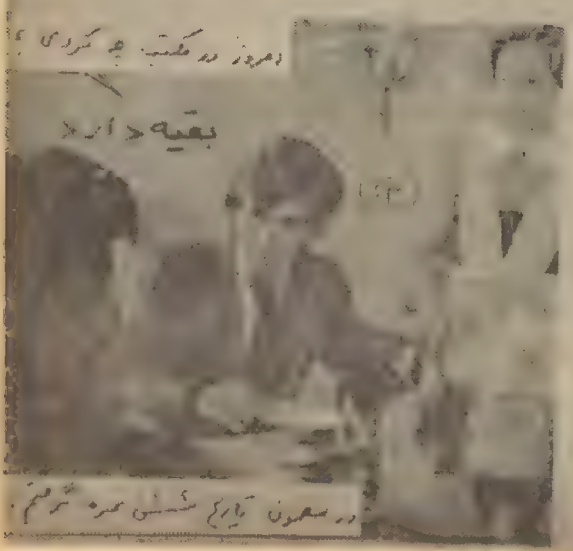 امروز در مکتب چه کردی ؟
بقیه دارد
(۱۳)
در مضمون تاریخ شش نمره گرفتم.